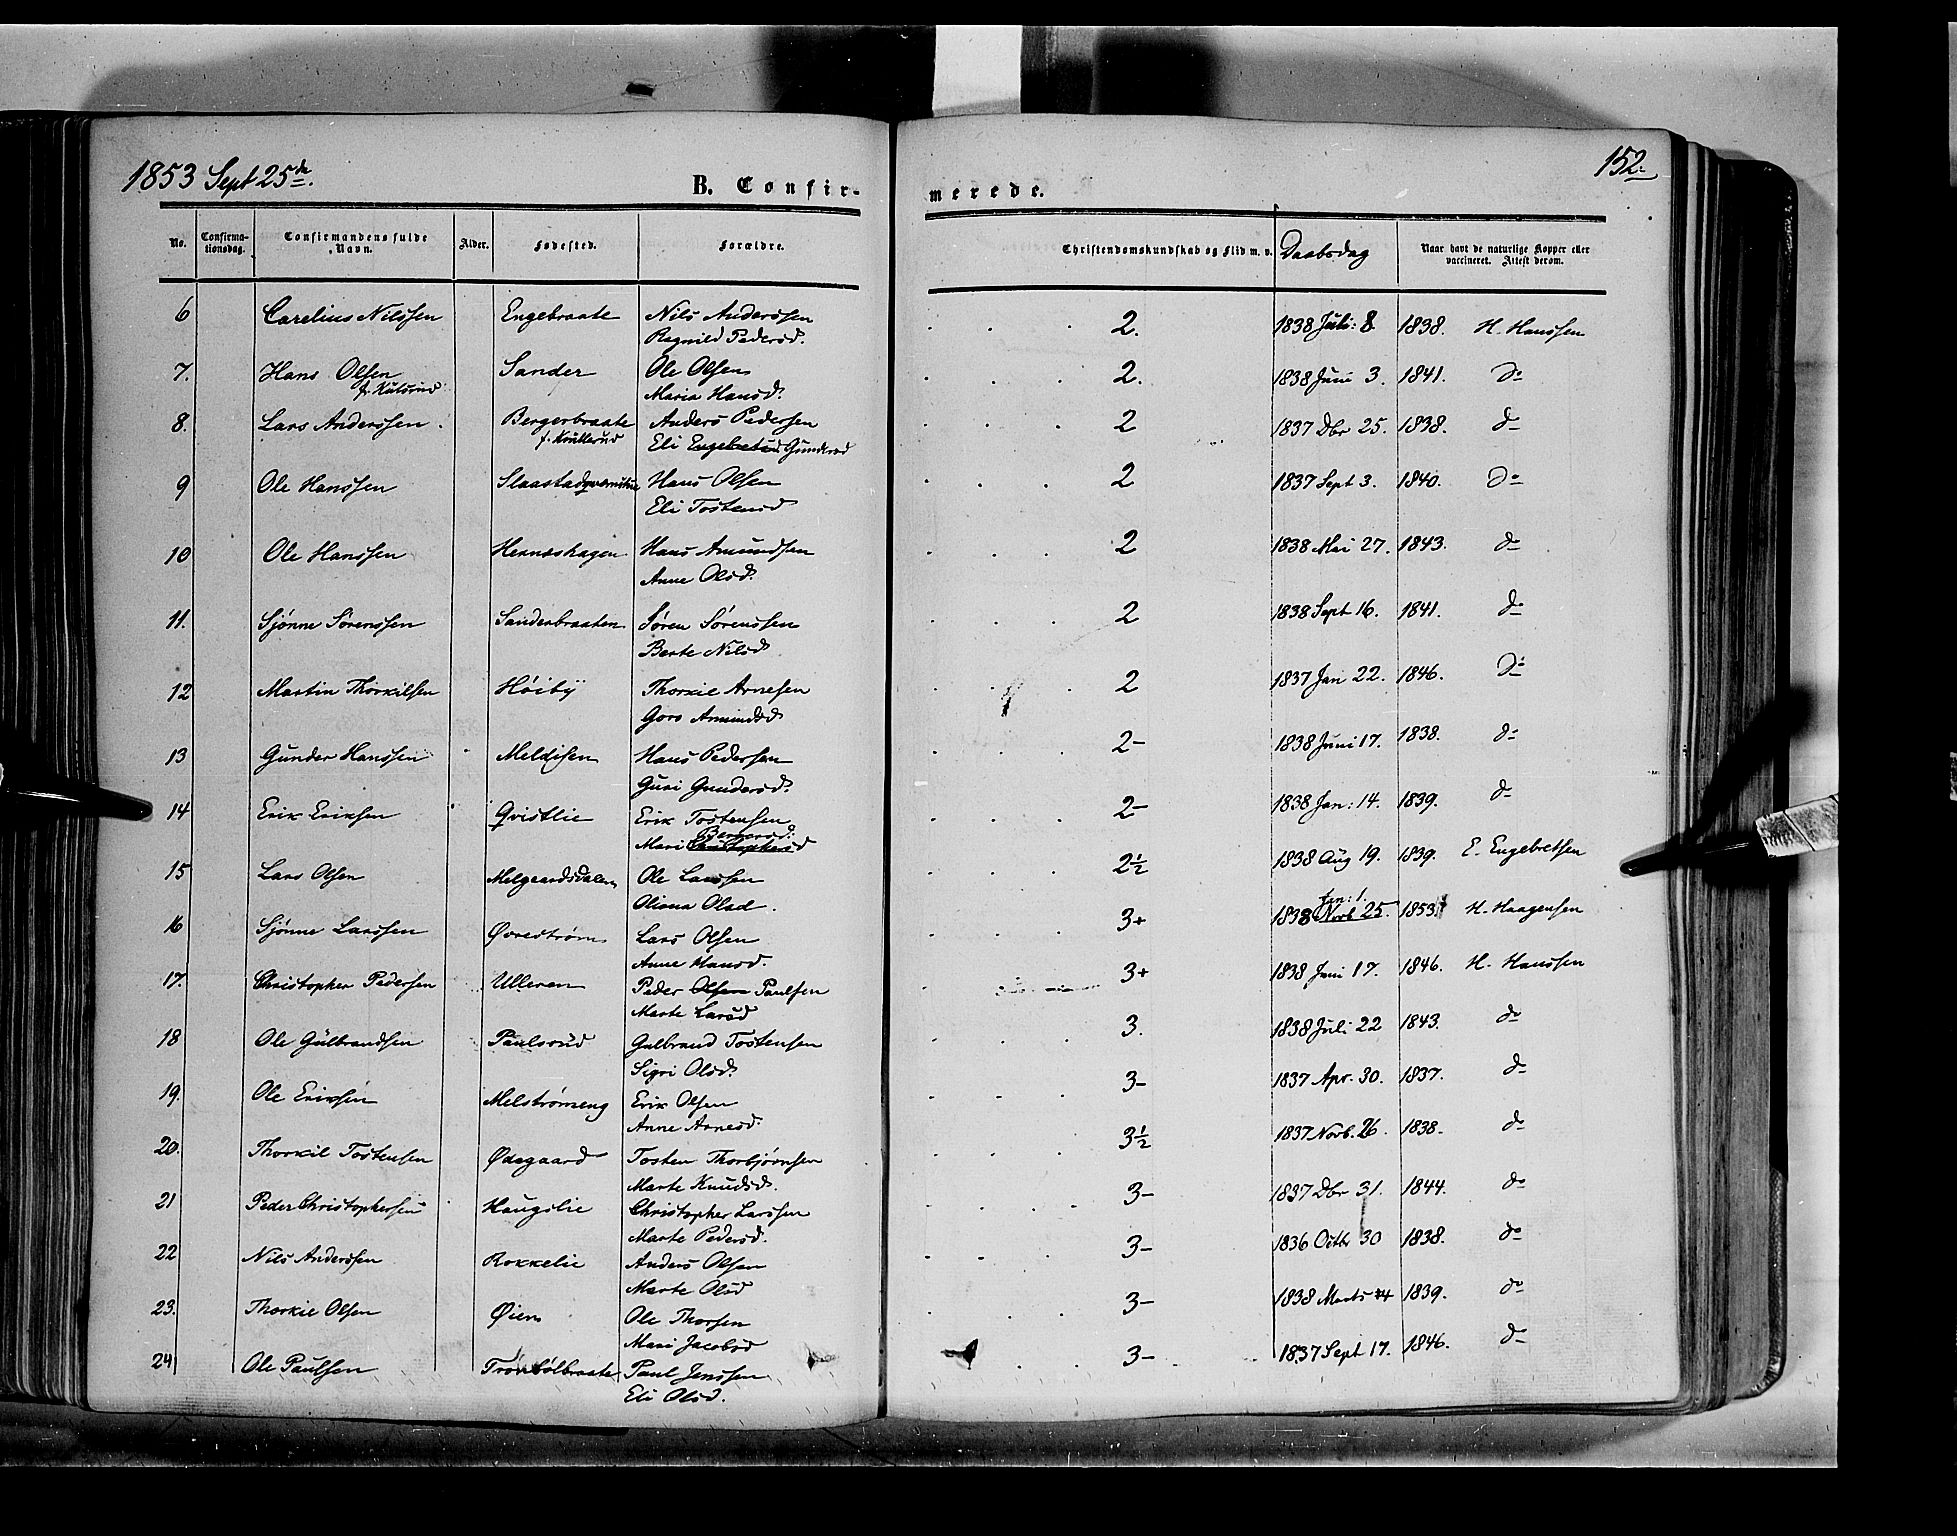 1853 Sept 25de.
152.
B. Confirmerede.
No. Confirmationsdag. Confirmandens fulde Navn. Alder. Fødested. Forældre. Christendomskundskab og Flid m. v. Daabsdag Naar havt de naturlige Kopper eller vaccineret. Attest derom.
6 Carelius Nilssen Engebraate Nils Anderssen 2. 1838 Juli: 8 1838. H. Hanssen
Ragnild Pedersd.
7. Hans Olsen Sander Ole Olsen 2. 1838 Juni 3. 1841. do
Maria Hansd.
8. Lars Anderssen Bergerbraate Anders Pedersen 2 1837 Dbr 25. 1838. do
Eli Gundersd
9 Ole Hanssen Hans Olsen 2 1837 Sept 3. 1840. do
Eli Tostensd
10 Ole Hanssen Hernæshagen Hans Amundsen 2 1838 Mai 27. 1843. do
Anne Olsd.
11. Sjønne Sørenssen Sanderbraaten Søren Sørenssen 2 1838 Sept 16. 1841. do
Berte Nilsd
12 Martin Thorkilsen Høiby Thorkil Arnesen 2 1837 Jan 22. 1846. do
Goro Amundsd
13 Gunder Hanssen Meldisen Hans Pedersen 2- 1838 Juni 17. 1838. do
Guri Gundersd.
14 Erik Eriksen Qvistlie Erik Tostensen 2- 1838 Jan: 14. 1839. do
Mari
15 Lars Olsen Melgaardsdalen Ole Larssen 2½ 1838 Aug 19. 1839. E. Engebretsen
Oliana Olsd.
16 Sjønne Larssen Øvrestrøm Lars Olsen 3+ 1838 25. 1853 H. Haagensen
Anne Hansd.
17. Christopher Pedersen Ulleren Peder Olsen Paulsen 3+ 1838 Juni 17. 1846. H. Hanssen
Marte Larsd
18 Ole Gulbrandsen Paulsrud Gulbrand Tostensen 3. 1838 Juli 22 1843. do
Sigri Olsd.
19. Ole Eriksen Melstrømeng Erik Olsen 3- 1837 Apr. 30. 1837. do
Anne Arnesd.
20. Thorkil Tostensen Ødegaard Tosten Thorbjørnsen 3½ 1837 Novb. 26. 1838. do
Marte Knudsd.
21 Peder Christophersen Haugslie Christopher Larssen 3- 1837 Dbr 31. 1844. do
Marte Pedersd.
22 Nils Anderssen Rokkelie Anders Olsen 3- 1836 Octbr 30 1838. do
Marte Olsd
23. Thorkil Olsen Øien Ole Thorsen 3- 1838 Marts 1839. do
Mari Jacobsd
24 Ole Paulsen Paul Jenssen 3- 1837 Sept 17. 1846. do
Eli Olsd.